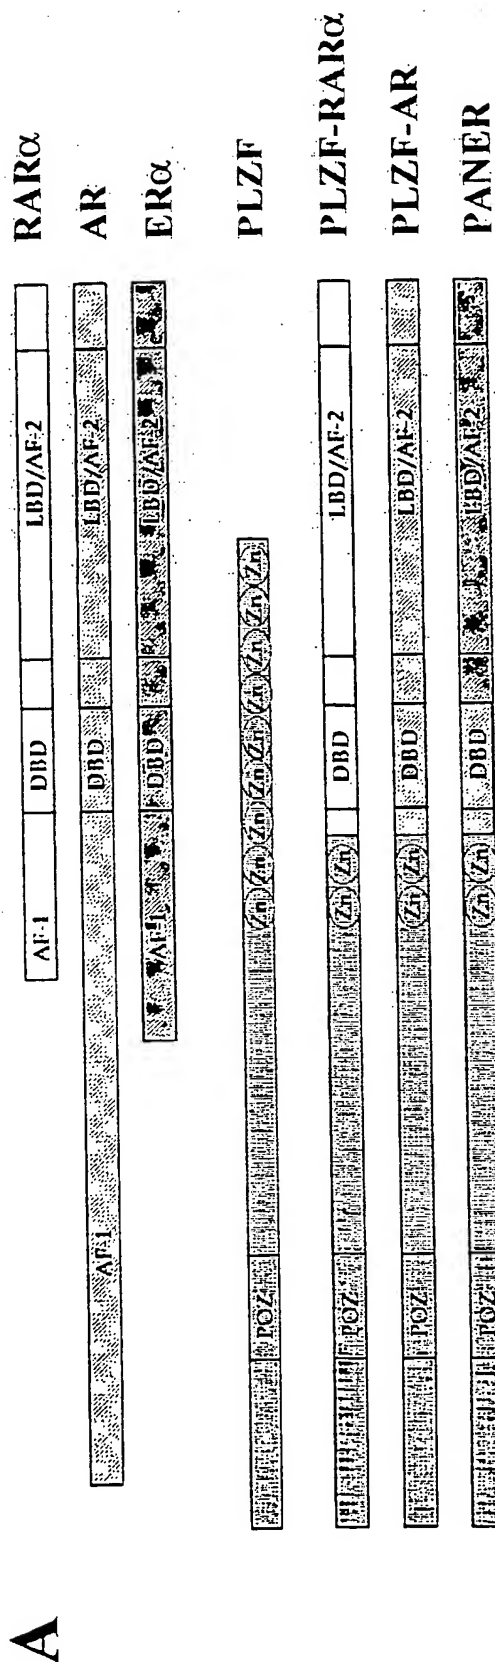 A
AF-1 DBD LBD/AF-2 RARα
AF-1 DBD LBD/AF-2 AR
AF-1 DBD LBD/AF-2 ERα
POZ Zn Zn Zn Zn Zn Zn Zn Zn Zn PLZF
POZ Zn Zn DBD LBD/AF-2 PLZF-RARα
POZ Zn Zn DBD LBD/AF-2 PLZF-AR
POZ Zn Zn DBD LBD/AF-2 PANER